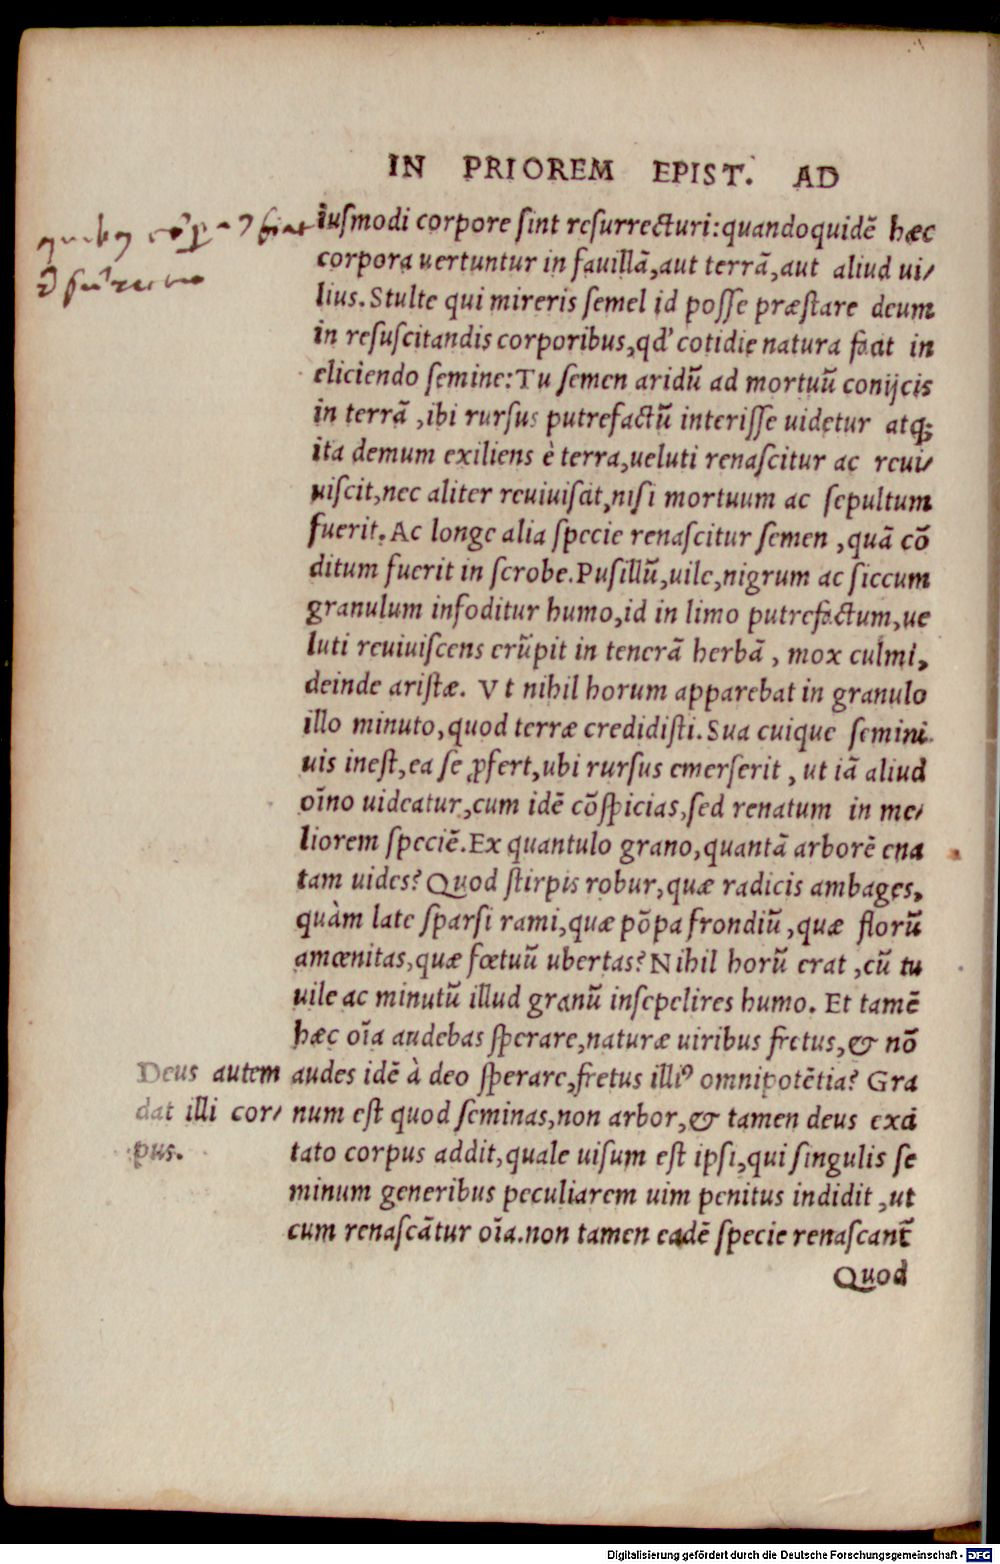 IN PRIOREM EPIST. AD
iusmodi corpore sint resurrecturi: quandoquidē hæc
corpora uertuntur in fauillā, aut terrā, aut aliud ui/
lius. Stulte qui mireris semel id posse præstare deum
in resuscitandis corporibus, qd' cotidie natura facit in
eliciendo semine: Tu semen aridū ad mortuū conijcis
in terrā, ibi rursus putrefactū interisse uidetur atq;
ita demum exiliens è terra, ueluti renascitur ac reui/
uiscit, nec aliter reuiuiscit, nisi mortuum ac sepultum
fuerit. Ac longe alia specie renascitur semen, quā cō
ditum fuerit in scrobe. Pusillū, uile, nigrum ac siccum
granulum infoditur humo, id in limo putrefactum, ue
luti reuiuiscens erūpit in tenerā herbā, mox culmi,
deinde aristæ. Vt nihil horum apparebat in granulo
illo minuto, quod terræ credidisti. Sua cuique semini
uis inest, ea se ꝓfert, ubi rursus emerserit, ut iā aliud
oīno uideatur, cum idē cōspicias, sed renatum in me/
liorem speciē. Ex quantulo grano, quantā arborē ena
tam uides? Quod stirpis robur, quæ radicis ambages,
quàm late sparsi rami, quæ pōpa frondiū, quæ florū
amœnitas, quæ fœtuū ubertas? Nihil horū erat, cū tu
uile ac minutū illud granū insepelires humo. Et tamē
hæc oīa audebas sperare, naturæ uiribus fretus, & nō
audes idē à deo sperare, fretus illiꝰ omnipotētia? Gra
num est quod seminas, non arbor, & tamen deus exci
tato corpus addit, quale uisum est ipsi, qui singulis se
minum generibus peculiarem uim penitus indidit, ut
cum renascātur oīa. non tamen eadē specie renascant̄
Quod
Deus autem
dat illi cor/
pus.
Digitalisierung gefördert durch die Deutsche Forschungsgemeinschaft - DFG